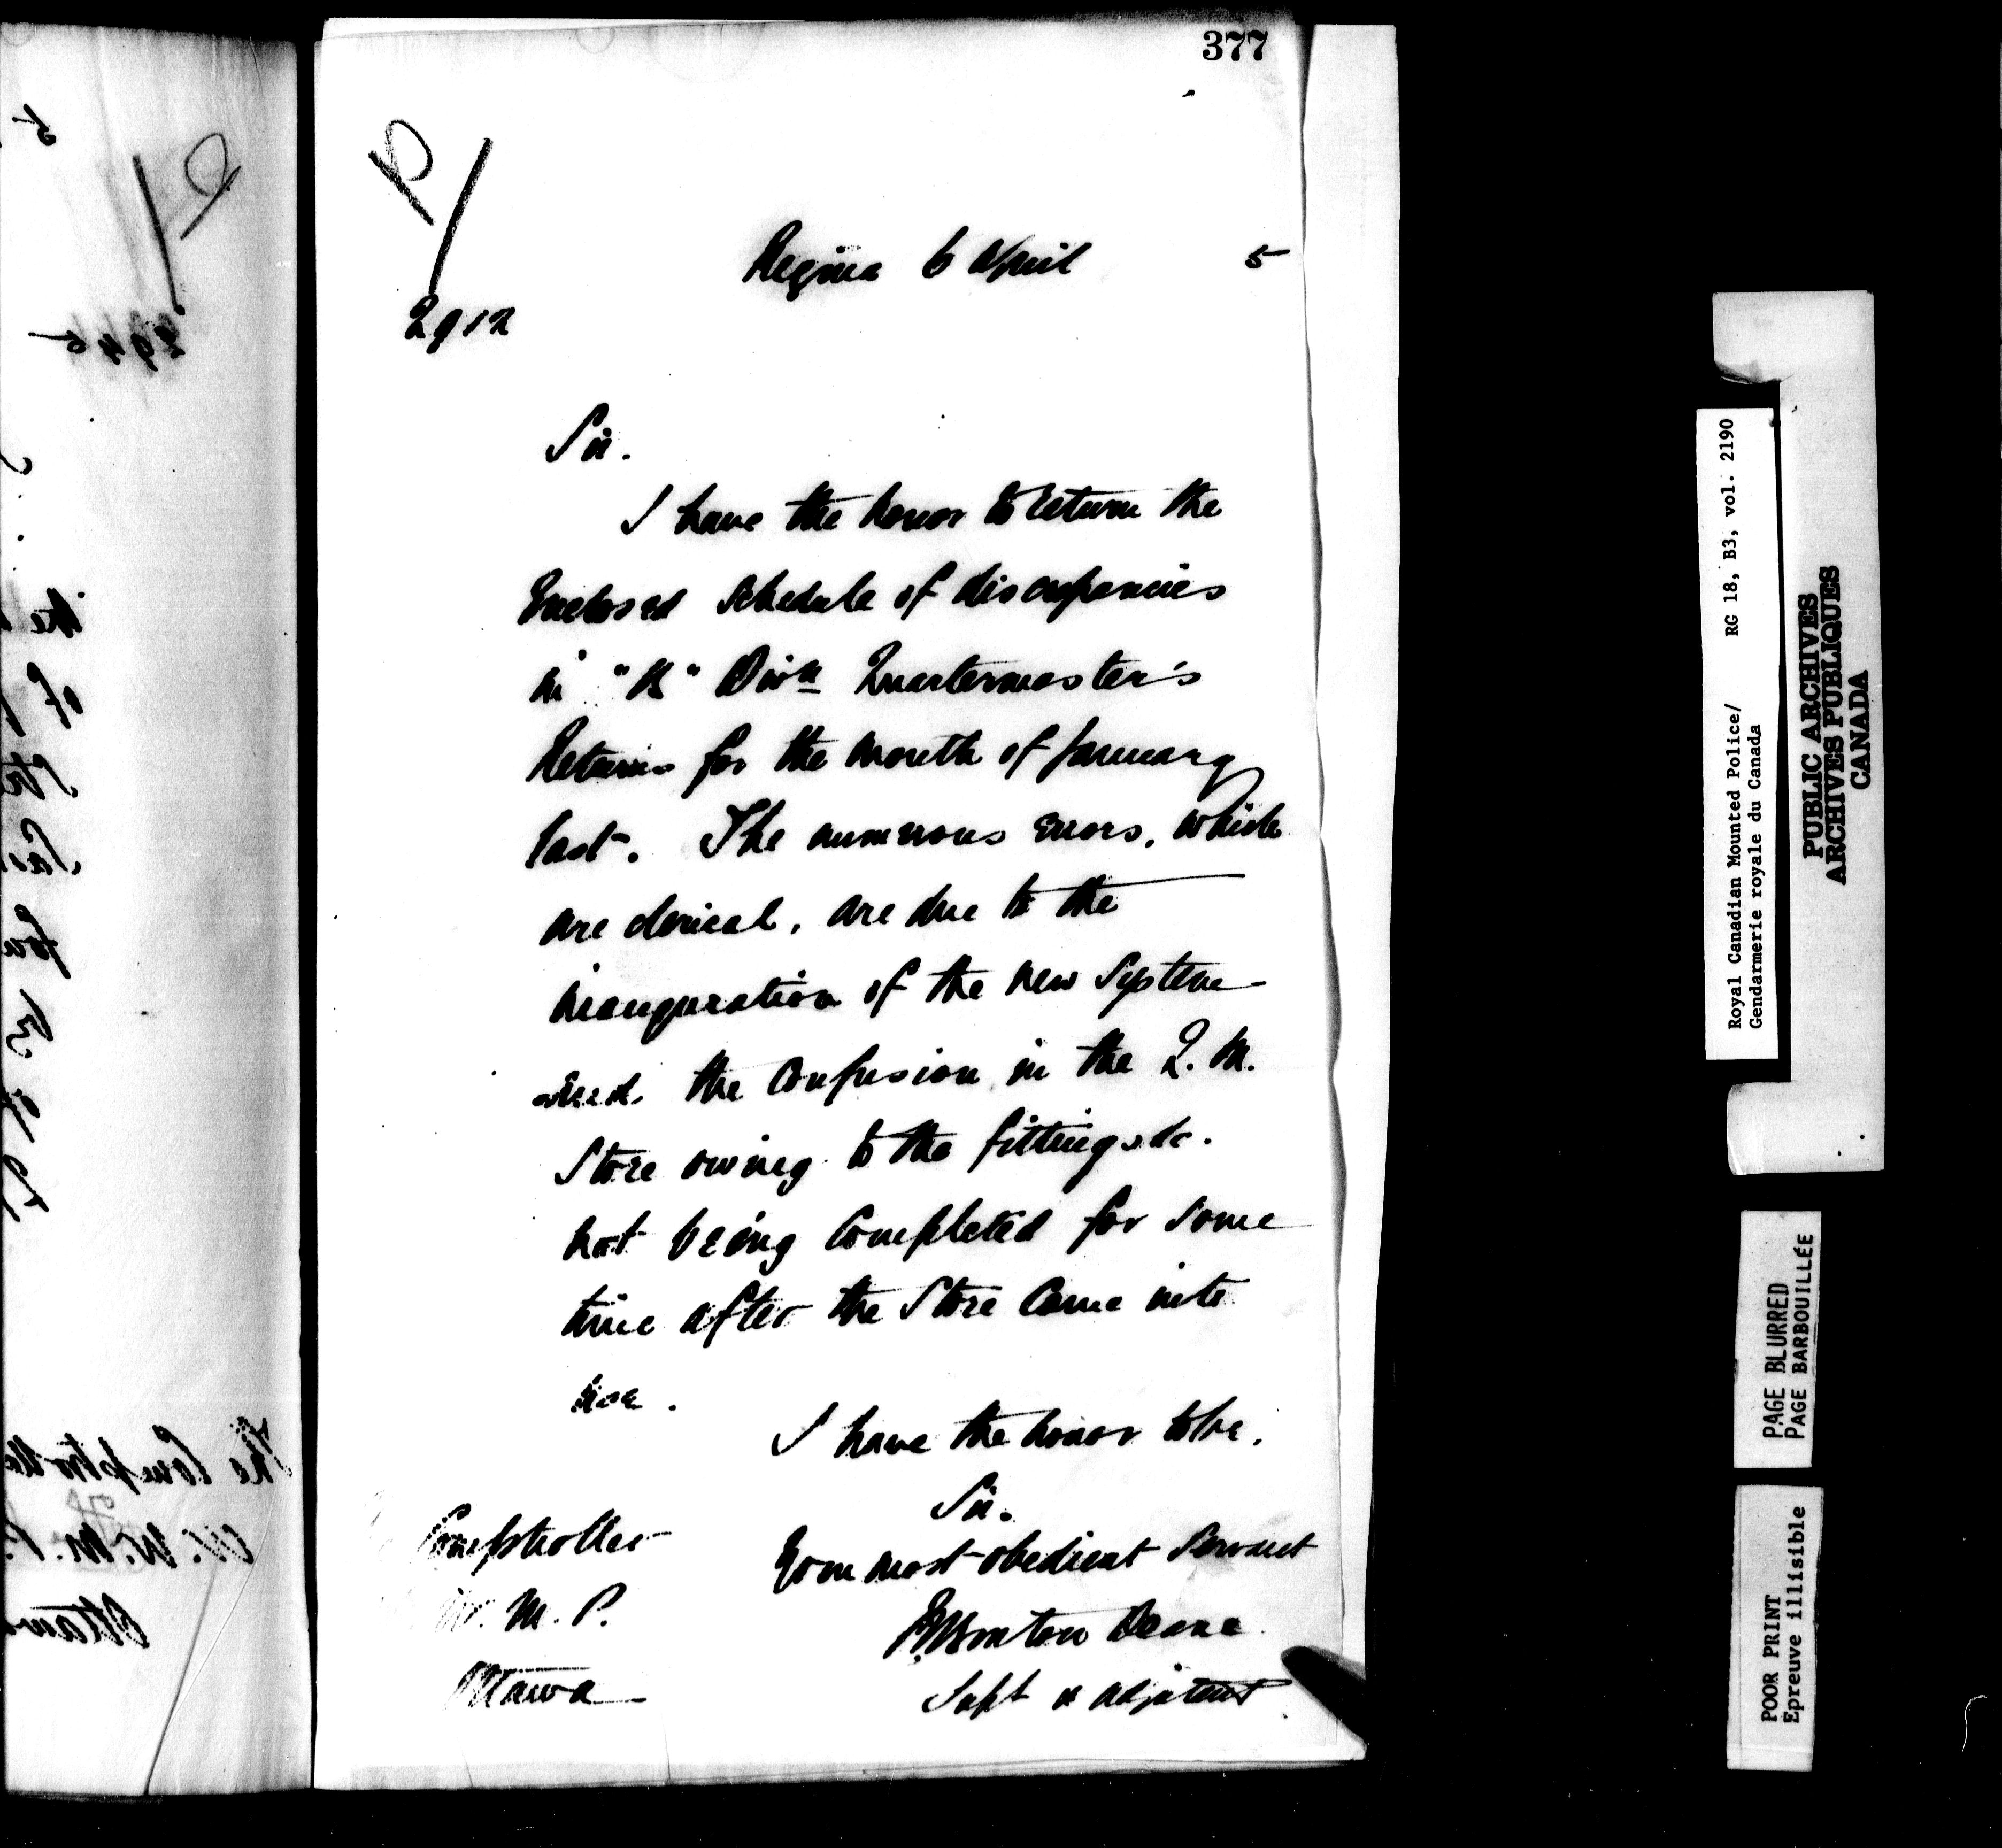 377
P/
2912
Regina 6 April 5
Sir.
I have the honor to return the
Enclosed Schedule of discrepancies
in "B" Divn Quartermaster's
Returns for the month of January
last. The numerous errors, which
are clerical, are due to the
inauguration of the new System
and the Confusion in the Q. M.
Store owing to the fittings &c.
not being Completed for some
time after the Store Came into
use.
I have the honor to be.
Sir.
Your most obedient Servant
R Burton Deane
Supt & Adjutant
Comptroller
W. M. P.
Ottawa
2945
the
of
The Comptroller
N. W. M. P.
Ottawa
Royal Canadian Mounted Police/ RG 18, B3, vol. 2190
Gendarmerie royale du Canada
PUBLIC ARCHIVES
ARCHIVES PUBLIQUES
CANADA
PAGE BLURRED
PAGE BARBOUILLÉE
POOR PRINT
Epreuve illisible